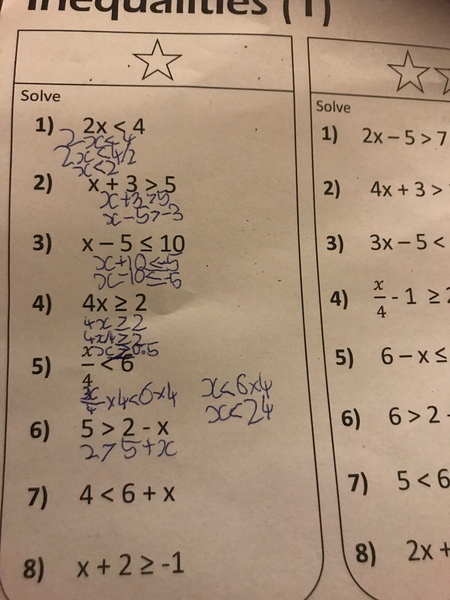 Inequalities (1)
Solve
1) 2x < 4
2x < 4
2x < 4/2
x < 2
2) x + 3 > 5
x + 3 > 5
x - 5 > -3
3) x – 5 ≤ 10
x + 10 ≤ +5
x - 10 ≤ -5
4) 4x ≥ 2
4x ≥ 2
4x/4 ≥ 2
x ≥ 0.5
5) x/4 < 6
x/4 × 4 < 6 × 4
x < 6 × 4
x < 24
6) 5 > 2 - x
2 > 5 + x
7) 4 < 6 + x
8) x + 2 ≥ -1
Solve
1) 2x – 5 > 7
2) 4x + 3 >
3) 3x – 5 <
4) x/4 - 1 ≥ 2
5) 6 – x ≤
6) 6 > 2 -
7) 5 < 6
8) 2x +